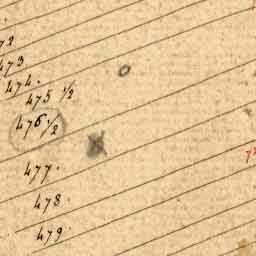 473
474.
475 1/2
476 1/2
477.
478.
479.